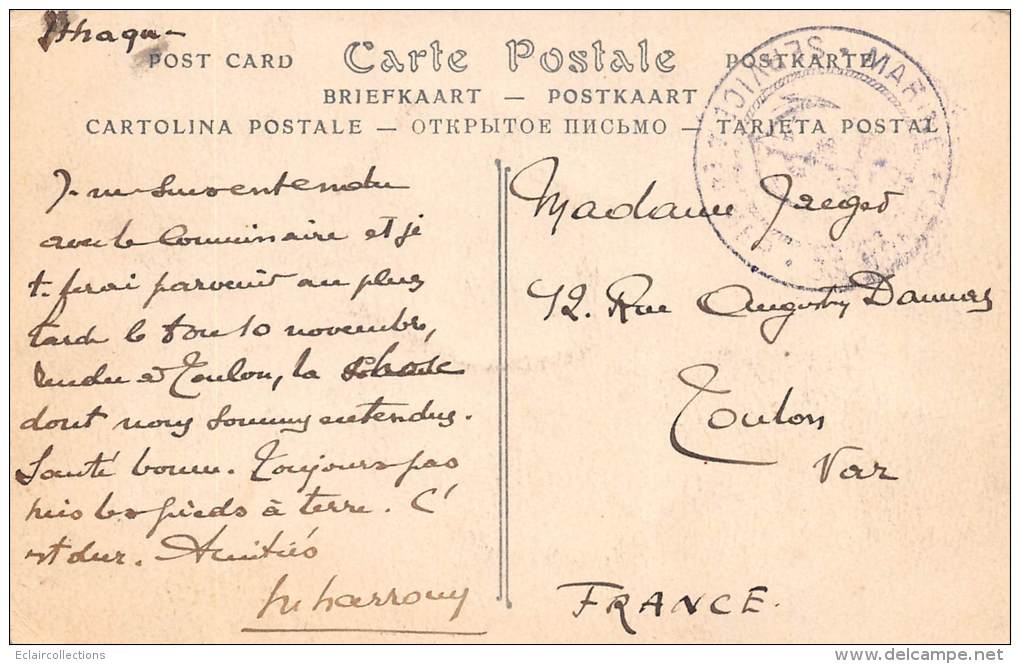 Ithaque
POST CARD Carte Postale POSTKARTE
BRIEFKAART — POSTKAART
CARTOLINA POSTALE — ОТКРЫТОЕ ПИСЬМО — TARJETA POSTAL
SERVICE MARINE
J. me suis entendu
avec le Commissaire et je
t. ferai parvenir au plus
tard le 8 ou 10 novembre,
rendu à Toulon, la chose
dont nous sommes entendus.
Santé bonne. Toujours pas
mis les pieds à terre. C'
est dur. Amitiés
Madame Jaeger
42. Rue Daumas
Toulon
Var
FRANCE.
Eclaircollections
delcampe.net